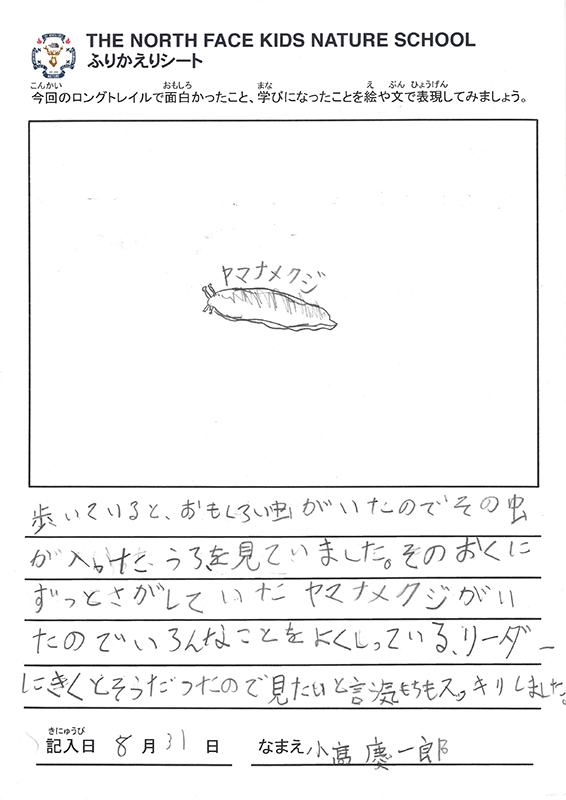 THE NORTH FACE KIDS NATURE SCHOOL
ふりかえりシート
こんかい おもしろ まな え ぶん ひょうげん
今回のロングトレイルで面白かったこと、学びになったことを絵や文で表現してみましょう。
ヤマナメクジ
歩いていると、おもしろい虫がいたのでその虫
が入った、うろを見ていました。そのおくに
ずっとさがしていたヤマナメクジがい
たのでいろんなことをよくしっている、リーダー
にきくとそうだったので見たいと言う気もちもスッキリしました。
きにゅうび
記入日 8月31日 なまえ 小高慶一郎